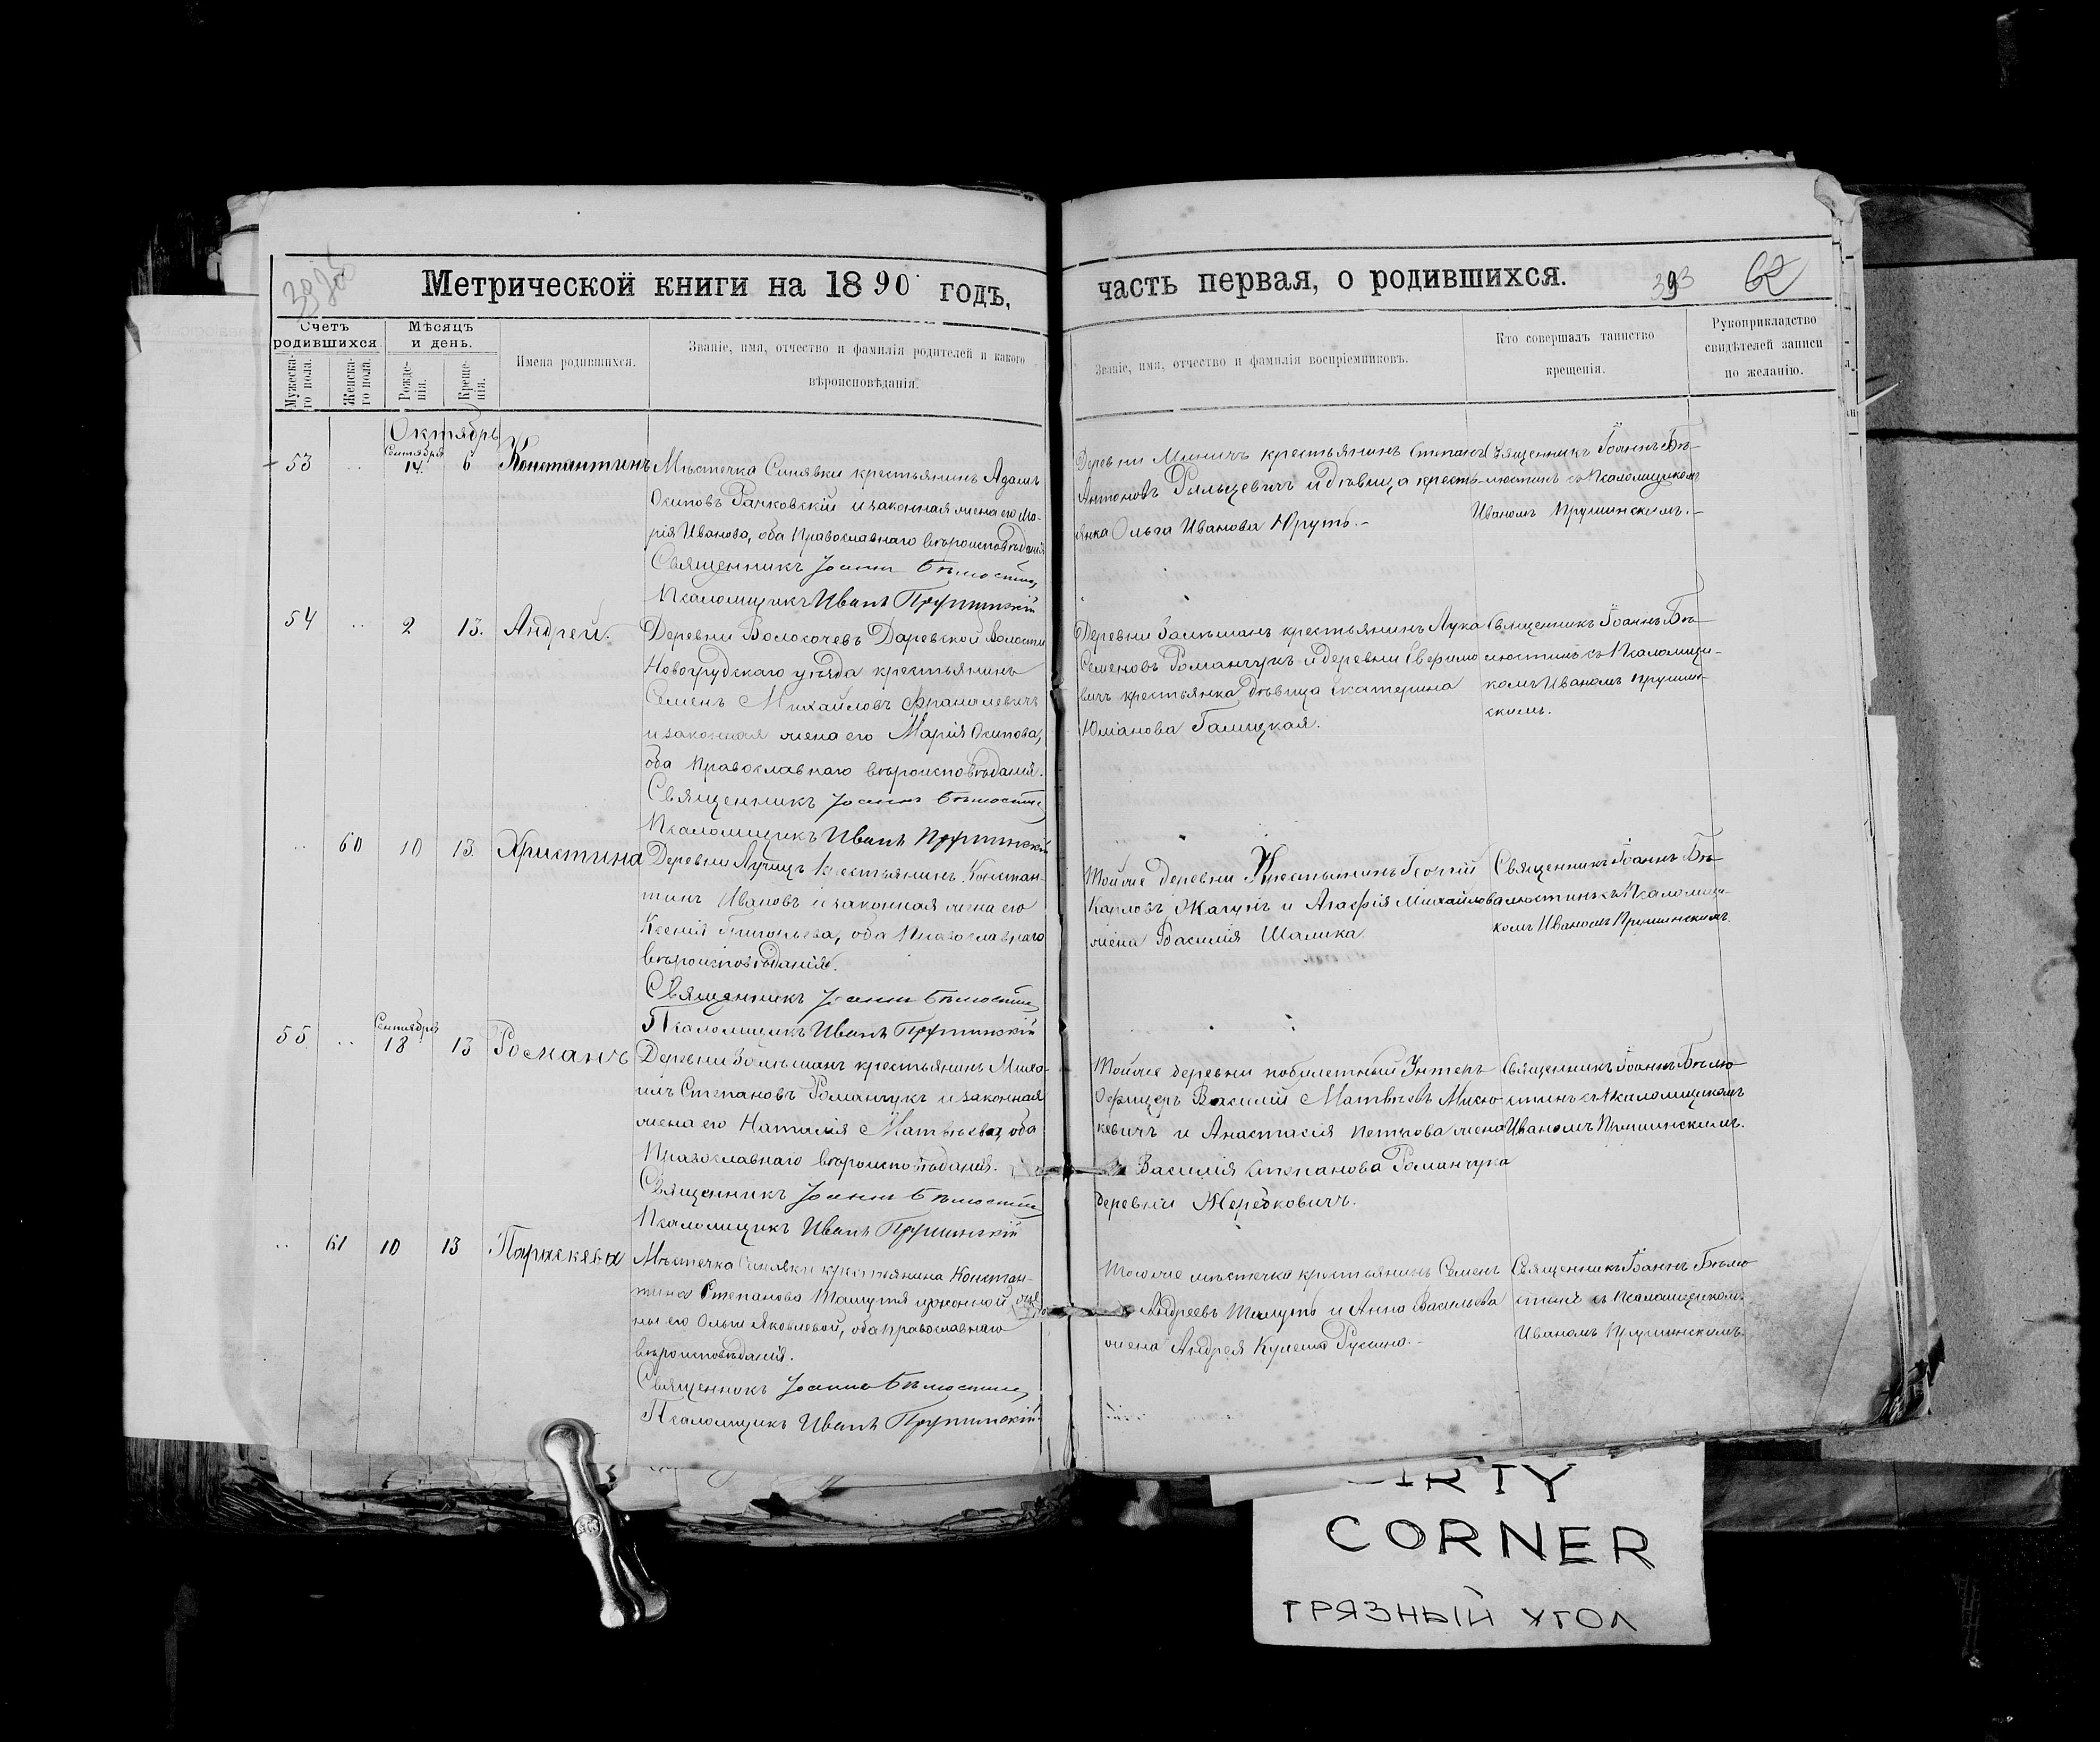 Метрической книги на 1890 годъ,
часть первая, о родившихся.
393
62
Счетъ родившихся
Мѣсяцъ и день.
Мужеска-го пола.
Женска-го пола.
Рожде-нія.
Креще-нія.
Имена родившихся.
Званіе, имя, отчество и фамилія родителей и какого
вѣроисповѣданія.
Званіе, имя, отчество и фамилія воспріемниковъ.
Кто совершалъ таинство
крещенія.
Рукоприкладство
свидѣтелей записи
по желанію.
Октябрь
53
Сентября
14.
6
Константинъ
Мѣстечка Синявки крестьянинъ Адамъ
Осиповъ Рачковскій и законная жена его Ма-
рія Иванова, оба Православнаго вѣроисповѣданія
Священникъ Іоаннъ Бѣлюстинъ
Псаломщикъ Иванъ Прушинскій
Деревни Миничъ крестьянинъ Степанъ
Антоновъ Рыльцевичъ и дѣвица кресть-
янка Ольга Иванова Юруть.-
Священникъ Іоаннъ Бѣ-
люстинъ съ Псаломщикомъ
Иваномъ Прушинскимъ.-
54
2
13.
Андрей.
Деревни Волосачевъ Даревской Волости
Новогрудскаго уѣзда крестьянинъ
Семенъ Михайловъ
и законная жена его Марія Осипова,
оба Православнаго вѣроисповѣданія.
Священникъ Іоаннъ Бѣлюстинъ
Псаломщикъ Иванъ Прушинскій
Деревни Залѣшанъ крестьянинъ Лука
Семеновъ Романчукъ и деревни
вичъ крестьянка дѣвица Екатерина
Юліанова Галицкая.
Священникъ Іоаннъ Бѣ-
люстинъ съ Псаломщи-
комъ Иваномъ Прушин-
скимъ.
60
10
13.
Христина
Деревни Лучицъ Крестьянинъ Констан-
тинъ Ивановъ и законная жена его
Ксенія Григорьева, оба Православнаго
вѣроисповѣданія.
Священникъ Іоаннъ Бѣлюстинъ
Псаломщикъ Иванъ Прушинскій
Той же деревни Крестьянинъ Георгій
Карловъ Жагунъ и Агафія Михайлова
жена Василія Шалика
Священникъ Іоаннъ Бѣ-
люстинъ съ Псаломщи-
комъ Иваномъ Прушинскимъ.
55
Сентября
18
13
Романъ
Деревни Залѣшанъ крестьянинъ Миха-
илъ Степановъ Романчукъ и законная
жена его Наталія Матвѣева, оба
Православнаго вѣроисповѣданія.
Священникъ Іоаннъ Бѣлюстинъ
Псаломщикъ Иванъ Прушинскій
Той же деревни побилетный Унтеръ
Офицеръ Василій Матвѣевъ Мисю-
кевичъ и Анастасія Петрова жена
Василія Степанова Романчука
деревни Жеребковичъ.
Священникъ Іоаннъ Бѣлю-
стинъ съ Псаломщикомъ
Иваномъ Прушинскимъ.
61
10
13
Параскева
Мѣстечка Синявки крестьянина Констан-
тина Степанова Ташутя законной же-
ны его Ольги Яковлевой, оба православнаго
вѣроисповѣданія.
Священникъ Іоаннъ Бѣлюстинъ
Псаломщикъ Иванъ Прушинскій.
Того же мѣстечка крестьянинъ Семенъ
Андреевъ и Анна Васильева
жена Андрея
Священникъ Іоаннъ Бѣлю-
стинъ съ Псаломщикомъ
Иваномъ Прушинскимъ.
CORNER
ГРЯЗНЫЙ УГОЛ